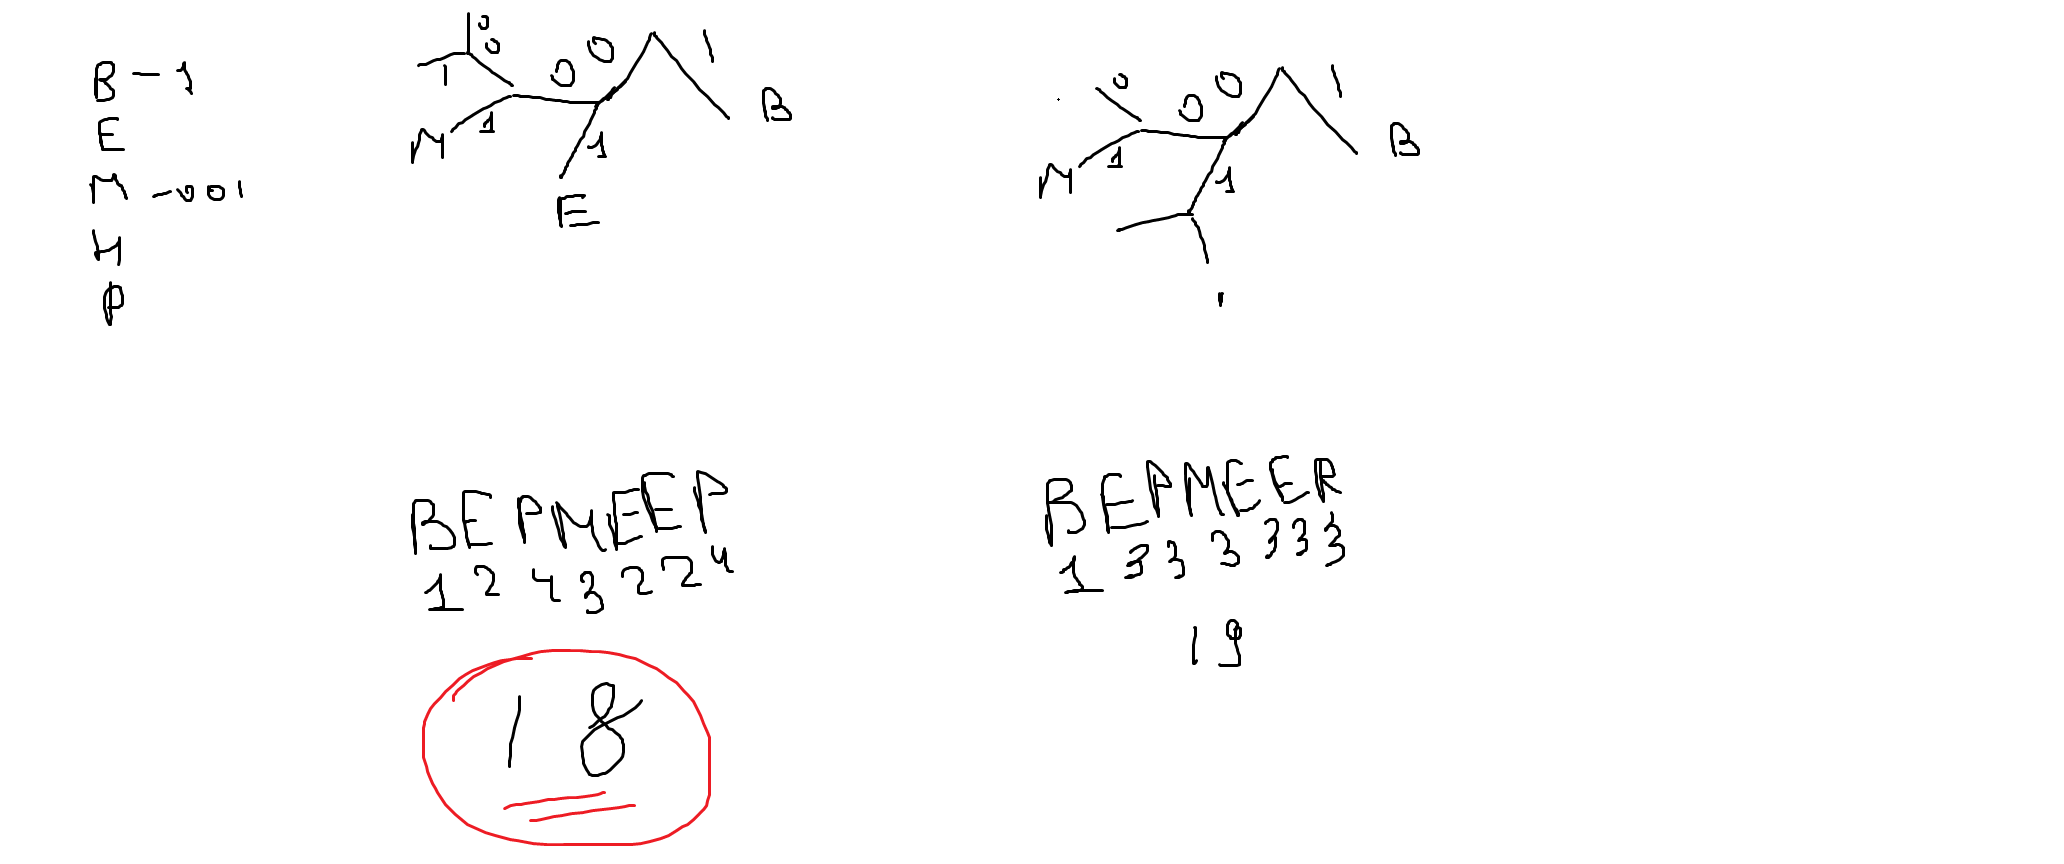 В – 1
Е
М – 001
Н
Р
0
0
1
0
0
1
М
1
1
В
Е
0
0
0
1
М
1
1
В
ВЕРМЕЕР
1 2 4 3 2 2 4
18
ВЕРМЕЕР
1 3 3 3 3 3 3
19